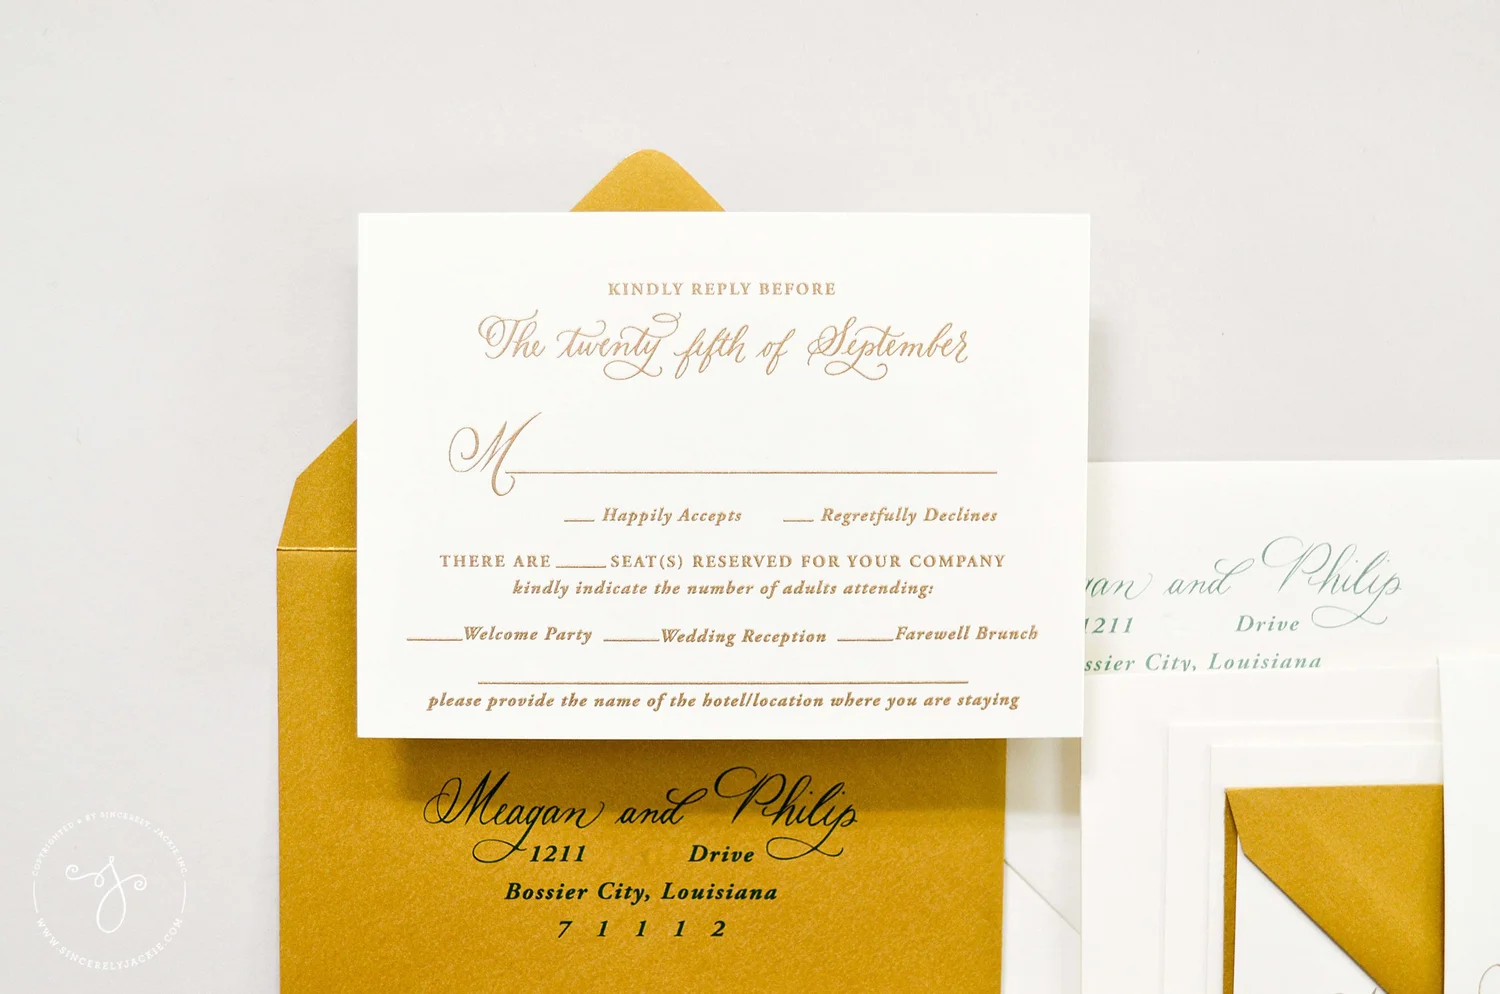 KINDLY REPLY BEFORE
The twenty fifth of September
M
Happily Accepts Regretfully Declines
THERE ARE SEAT(S) RESERVED FOR YOUR COMPANY
kindly indicate the number of adults attending:
Welcome Party Wedding Reception Farewell Brunch
please provide the name of the hotel/location where you are staying
Meagan and Philip
1211 Drive
Bossier City, Louisiana
7 1 1 1 2
and Philip
1211 Drive
City, Louisiana
COPYRIGHTED • BY SINCERELY, JACKIE INC.
WWW.SINCERELYJACKIE.COM